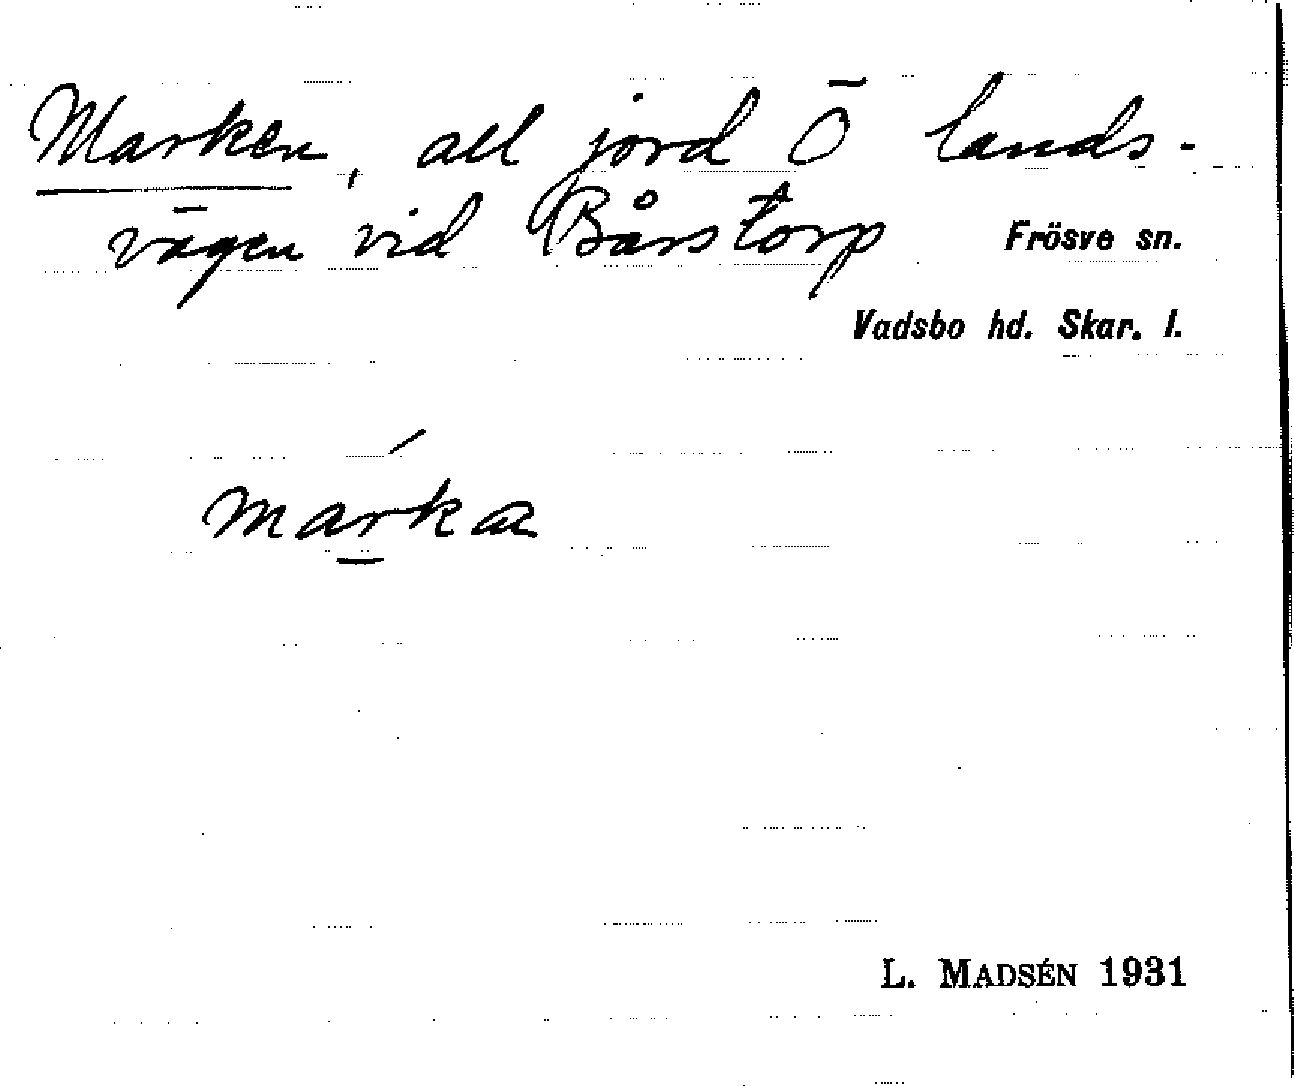 Marken, all jord Ö lands-
vägen vid Bårstorp
Frösve sn.
Vadsbo hd. Skar. l.
márka
L. MADSÉN 1931